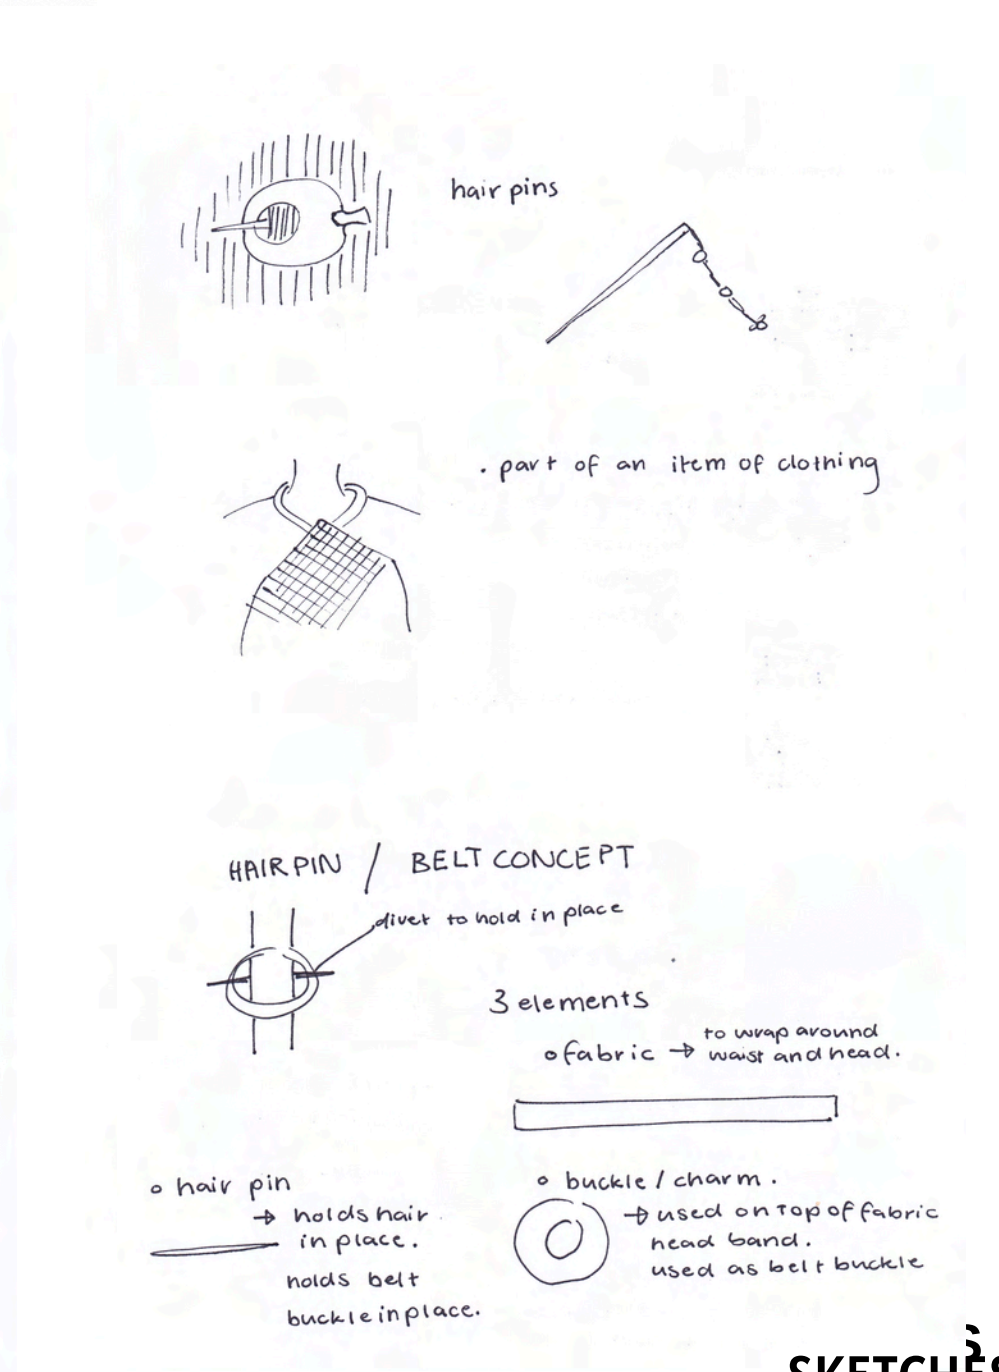 hair pins
. part of an item of clothing
HAIRPIN / BELT CONCEPT
divet to hold in place
3 elements
o fabric → to wrap around
waist and head.
o hair pin
→ holds hair
in place.
holds belt
buckle in place.
o buckle / charm.
→ used on top of fabric
head band.
used as belt buckle